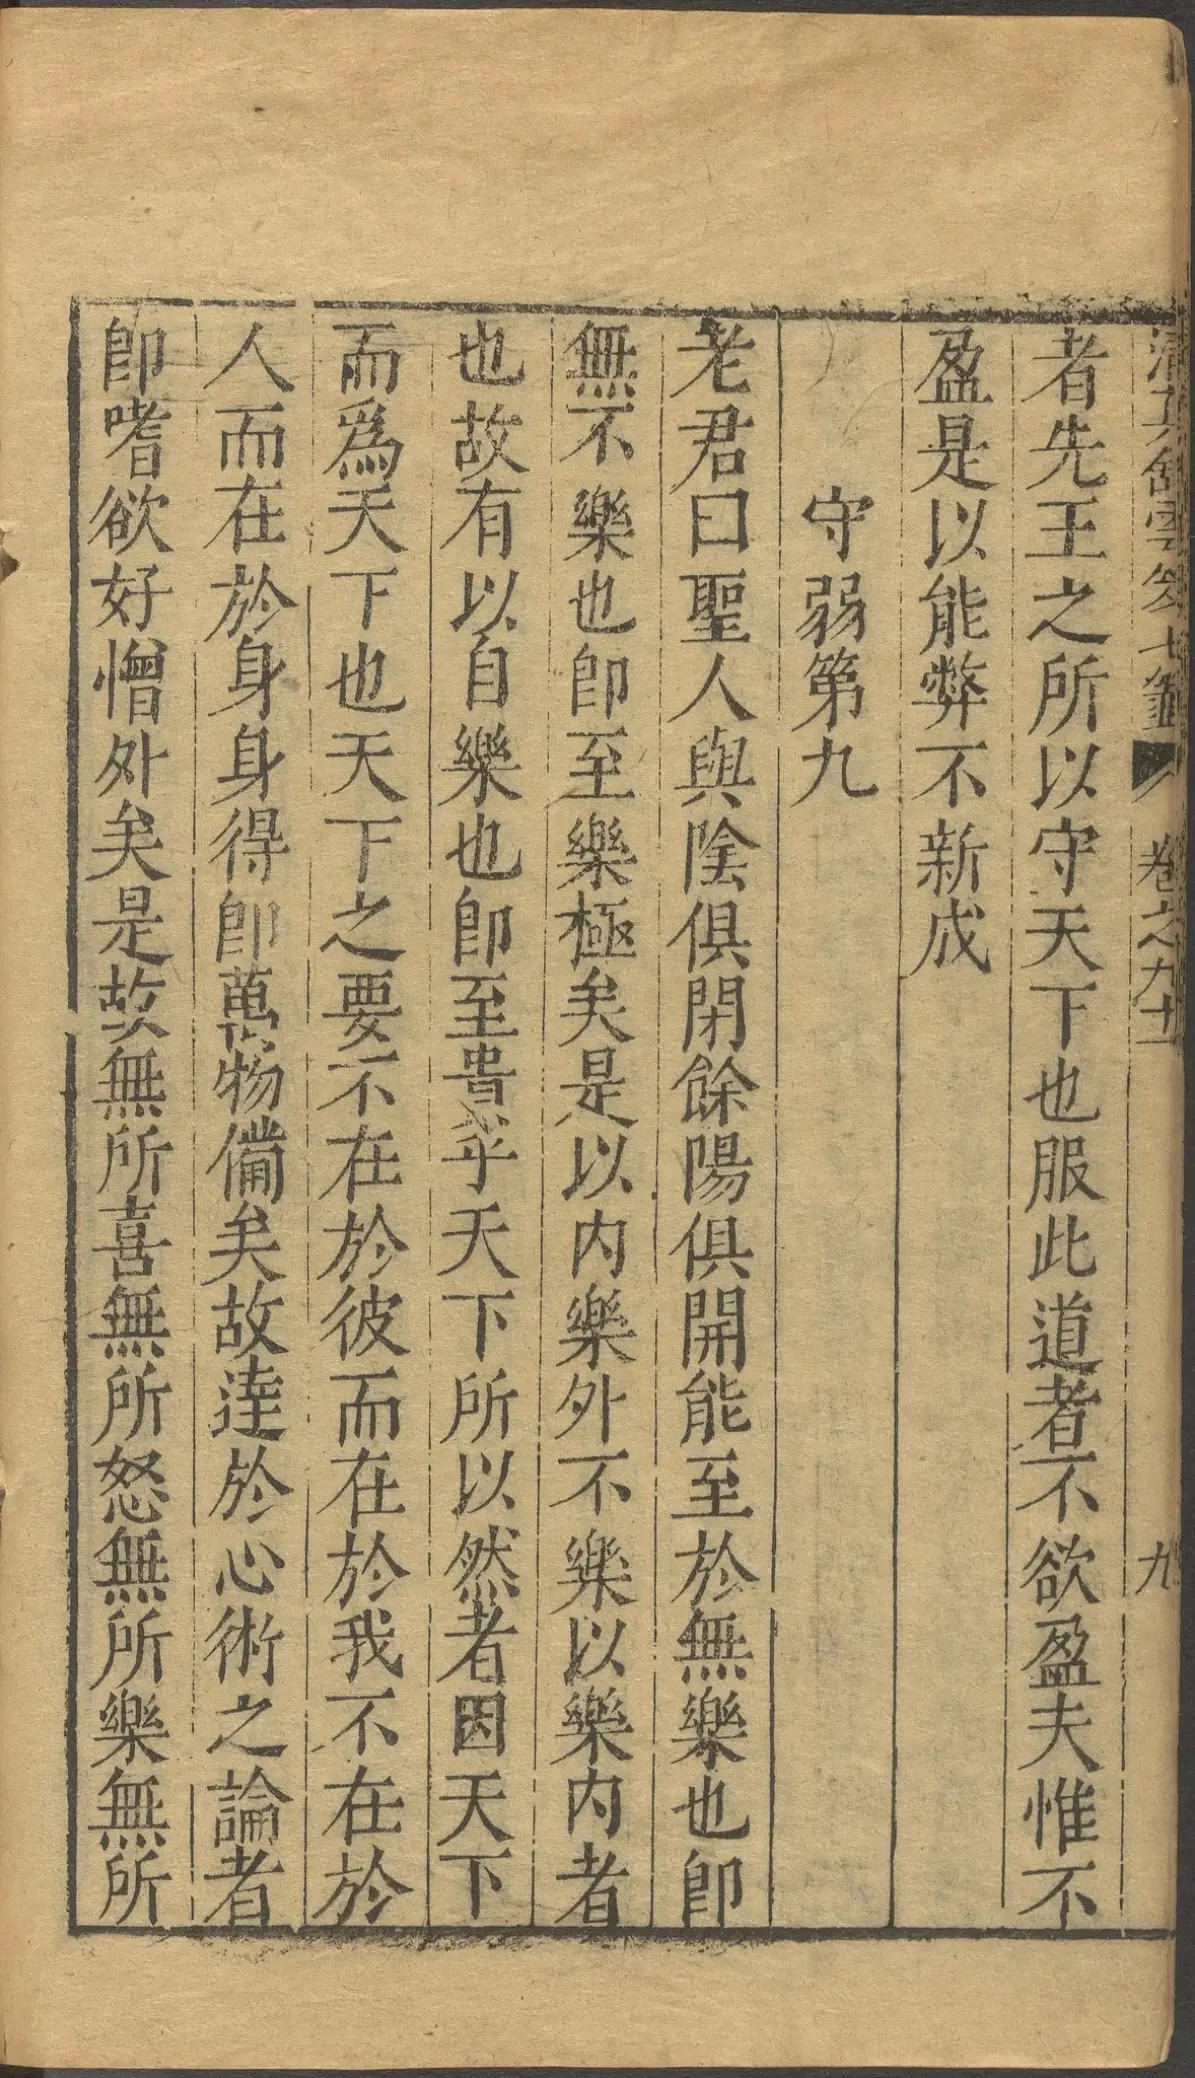 清真舘雲笈七籖 卷之九十一 九
者先王之所以守天下也服此道者不欲盈夫惟不
盈是以能弊不新成
守弱第九
老君曰聖人與陰俱閉餘陽俱開能至於無樂也卽
無不樂也卽至樂極矣是以内樂外不樂以樂内者
也故有以自樂也卽至貴乎天下所以然者因天下
而爲天下也天下之要不在於彼而在於我不在於
人而在於身身得卽萬物備矣故逹於心術之論者
卽嗜欲好憎外矣是故無所喜無所怒無所樂無所